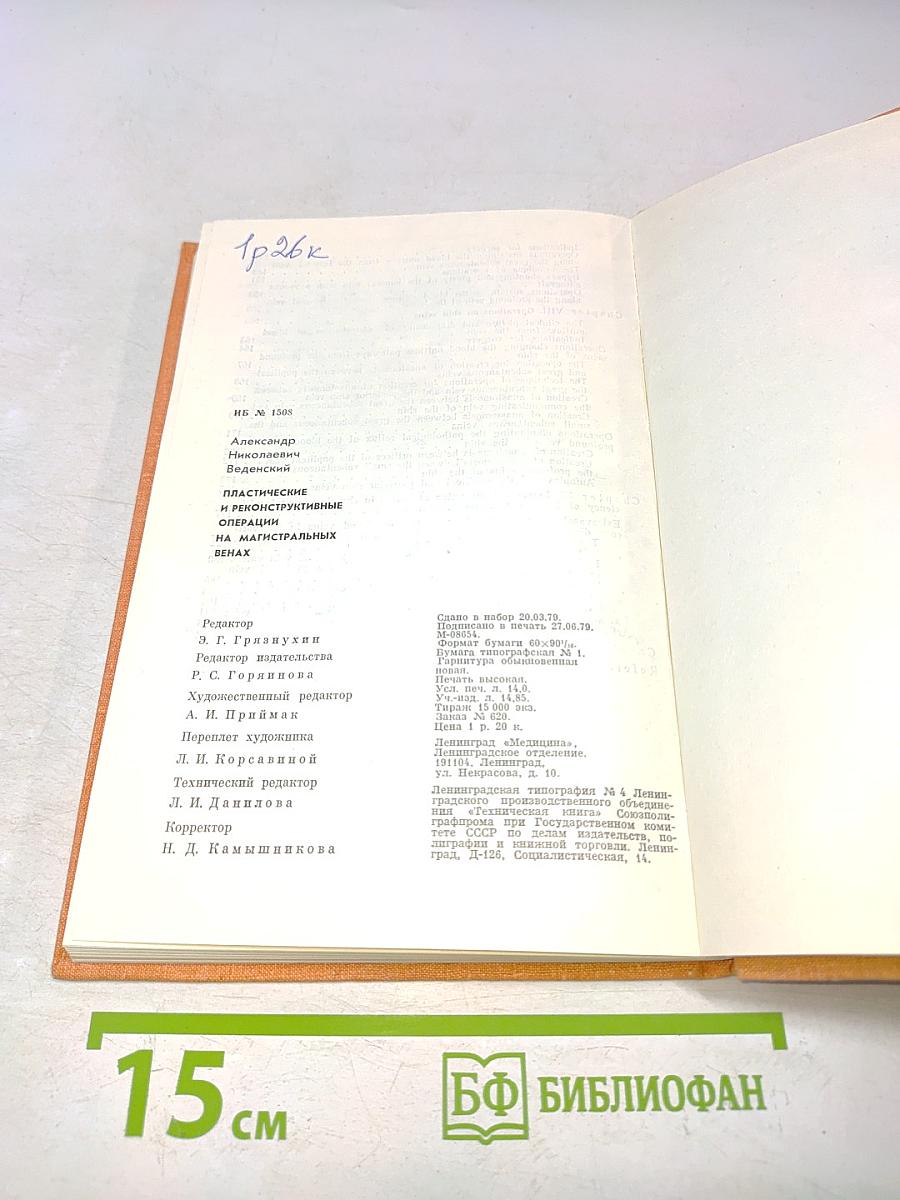 1р 26к
ИБ № 1508
Александр
Николаевич
Веденский
ПЛАСТИЧЕСКИЕ
И РЕКОНСТРУКТИВНЫЕ
ОПЕРАЦИИ
НА МАГИСТРАЛЬНЫХ
ВЕНАХ
Редактор
Э. Г. Грязнухин
Редактор издательства
Р. С. Горяинова
Художественный редактор
А. И. Приймак
Переплет художника
Л. И. Корсавиной
Технический редактор
Л. И. Данилова
Корректор
Н. Д. Камышникова
Сдано в набор 20.03.79.
Подписано в печать 27.06.79.
М-08654.
Формат бумаги 60×90¹/₁₆.
Бумага типографская № 1.
Гарнитура обыкновенная
новая.
Печать высокая.
Усл. печ. л. 14,0.
Уч.-изд. л. 14,85.
Тираж 15 000 экз.
Заказ № 620.
Цена 1 р. 20 к.
Ленинград «Медицина»,
Ленинградское отделение.
191104. Ленинград,
ул. Некрасова, д. 10.
Ленинградская типография № 4 Ленин-
градского производственного объедине-
ния «Техническая книга» Союзполи-
графпрома при Государственном коми-
тете СССР по делам издательств, по-
лиграфии и книжной торговли. Ленин-
град, Д-126, Социалистическая, 14.
15 см
БФ БИБЛИОФАН